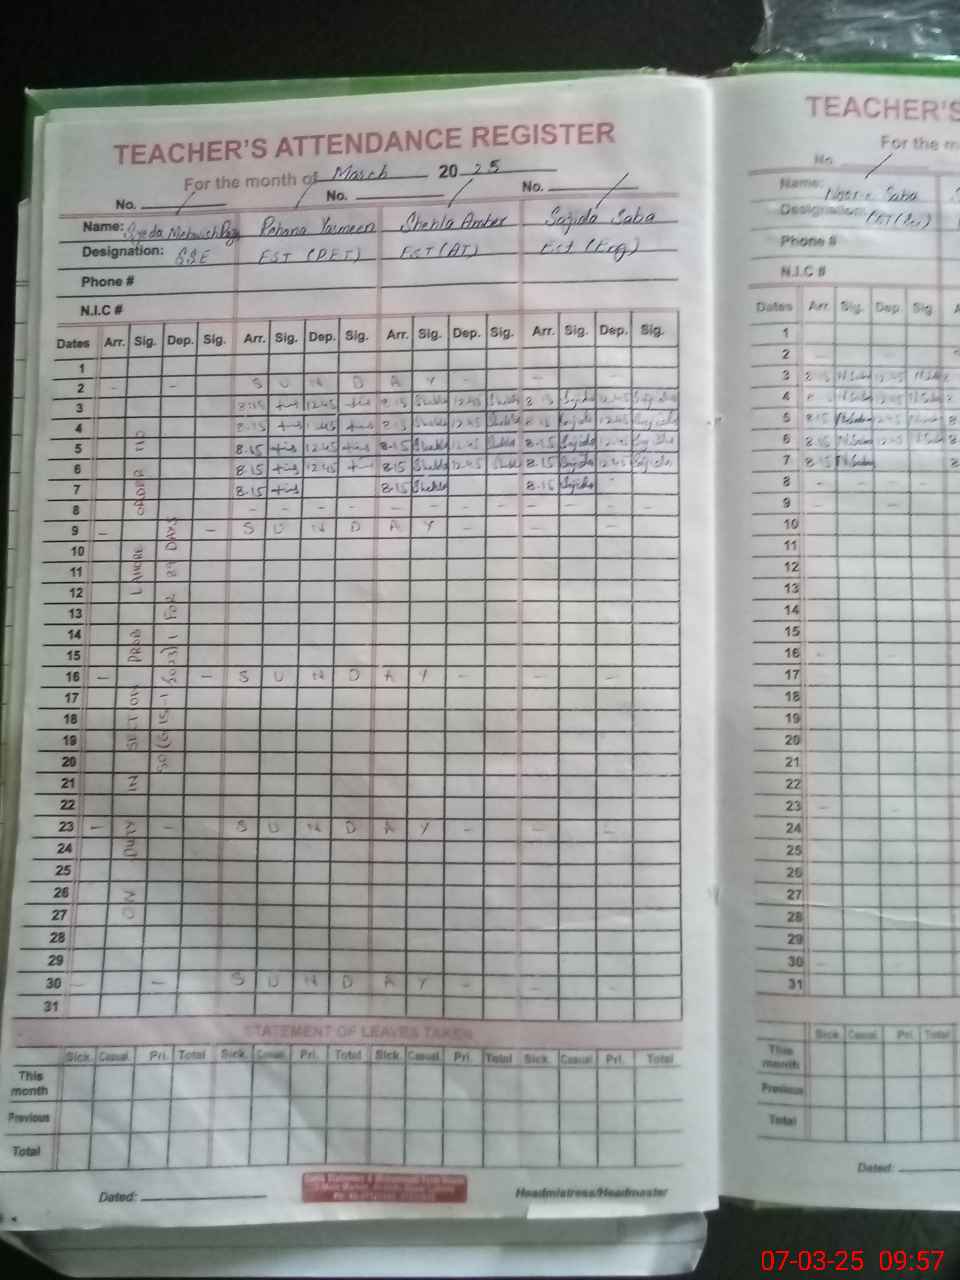 TEACHER'S ATTENDANCE REGISTER
For the month of March 2025
No. No. No.
Name: Syeda Mehwish Rohana Yasmeen Shehla Amber Sajida Saba
Designation: SSE EST (PET) EST (AT) EST (Eng)
Phone #
N.I.C #
Dates Arr. Sig. Dep. Sig. Arr. Sig. Dep. Sig. Arr. Sig. Dep. Sig. Arr. Sig. Dep. Sig.
1
2 - - S U N D A Y - - -
3 8:15 12:45 8.15 Shehla 12:45 Shehla 8.15 Sajida 12:45 Sajida
4 8:15 12:45 8.15 Shehla 12:45 Shehla 8.15 Sajida 12:45 Sajida
5 8.15 12:45 8.15 Shehla 12:45 Shehla 8.15 Sajida 12:45 Sajida
6 8.15 12:45 8.15 Shehla 12:45 Shehla 8.15 Sajida 12:45 Sajida
7 8.15 8.15 Shehla 8.15 Sajida
8 - - - - - - - - - - - -
9 - - S U N D A Y - - -
10
11
12
13
14
15
16 - - S U N D A Y - - -
17
18
19
20
21
22
23 - - S U N D A Y - - -
24
25
26
27
28
29
30 - - S U N D A Y - - -
31
ON DUTY IN SECTION PROB LAHORE
FOR 89 DAYS
STATEMENT OF LEAVES TAKEN
Sick Casual Pri. Total Sick Casual Pri. Total Sick Casual Pri. Total Sick Casual Pri. Total
This month
Previous
Total
Dated: Headmistress/Headmaster
TEACHER'S
For the m
No.
Name: Saba
Designation:
Phone #
N.I.C #
Dates Arr. Sig. Dep. Sig.
1
2 -
3 8.15 N.Saba 12:45 N.Saba
4 8.15 N.Saba 12:45 N.Saba
5 8.15 N.Saba 12:45
6 8.15 N.Saba 12:45 N.Saba
7 8.15 N.Saba
8 - - - -
9 - -
10
11
12
13
14
15
16 -
17
18
19
20
21
22
23 - -
24
25
26
27
28
29
30 -
31
Sick Casual Pri. Total
This month
Previous
Total
Dated:
07-03-25 09:57